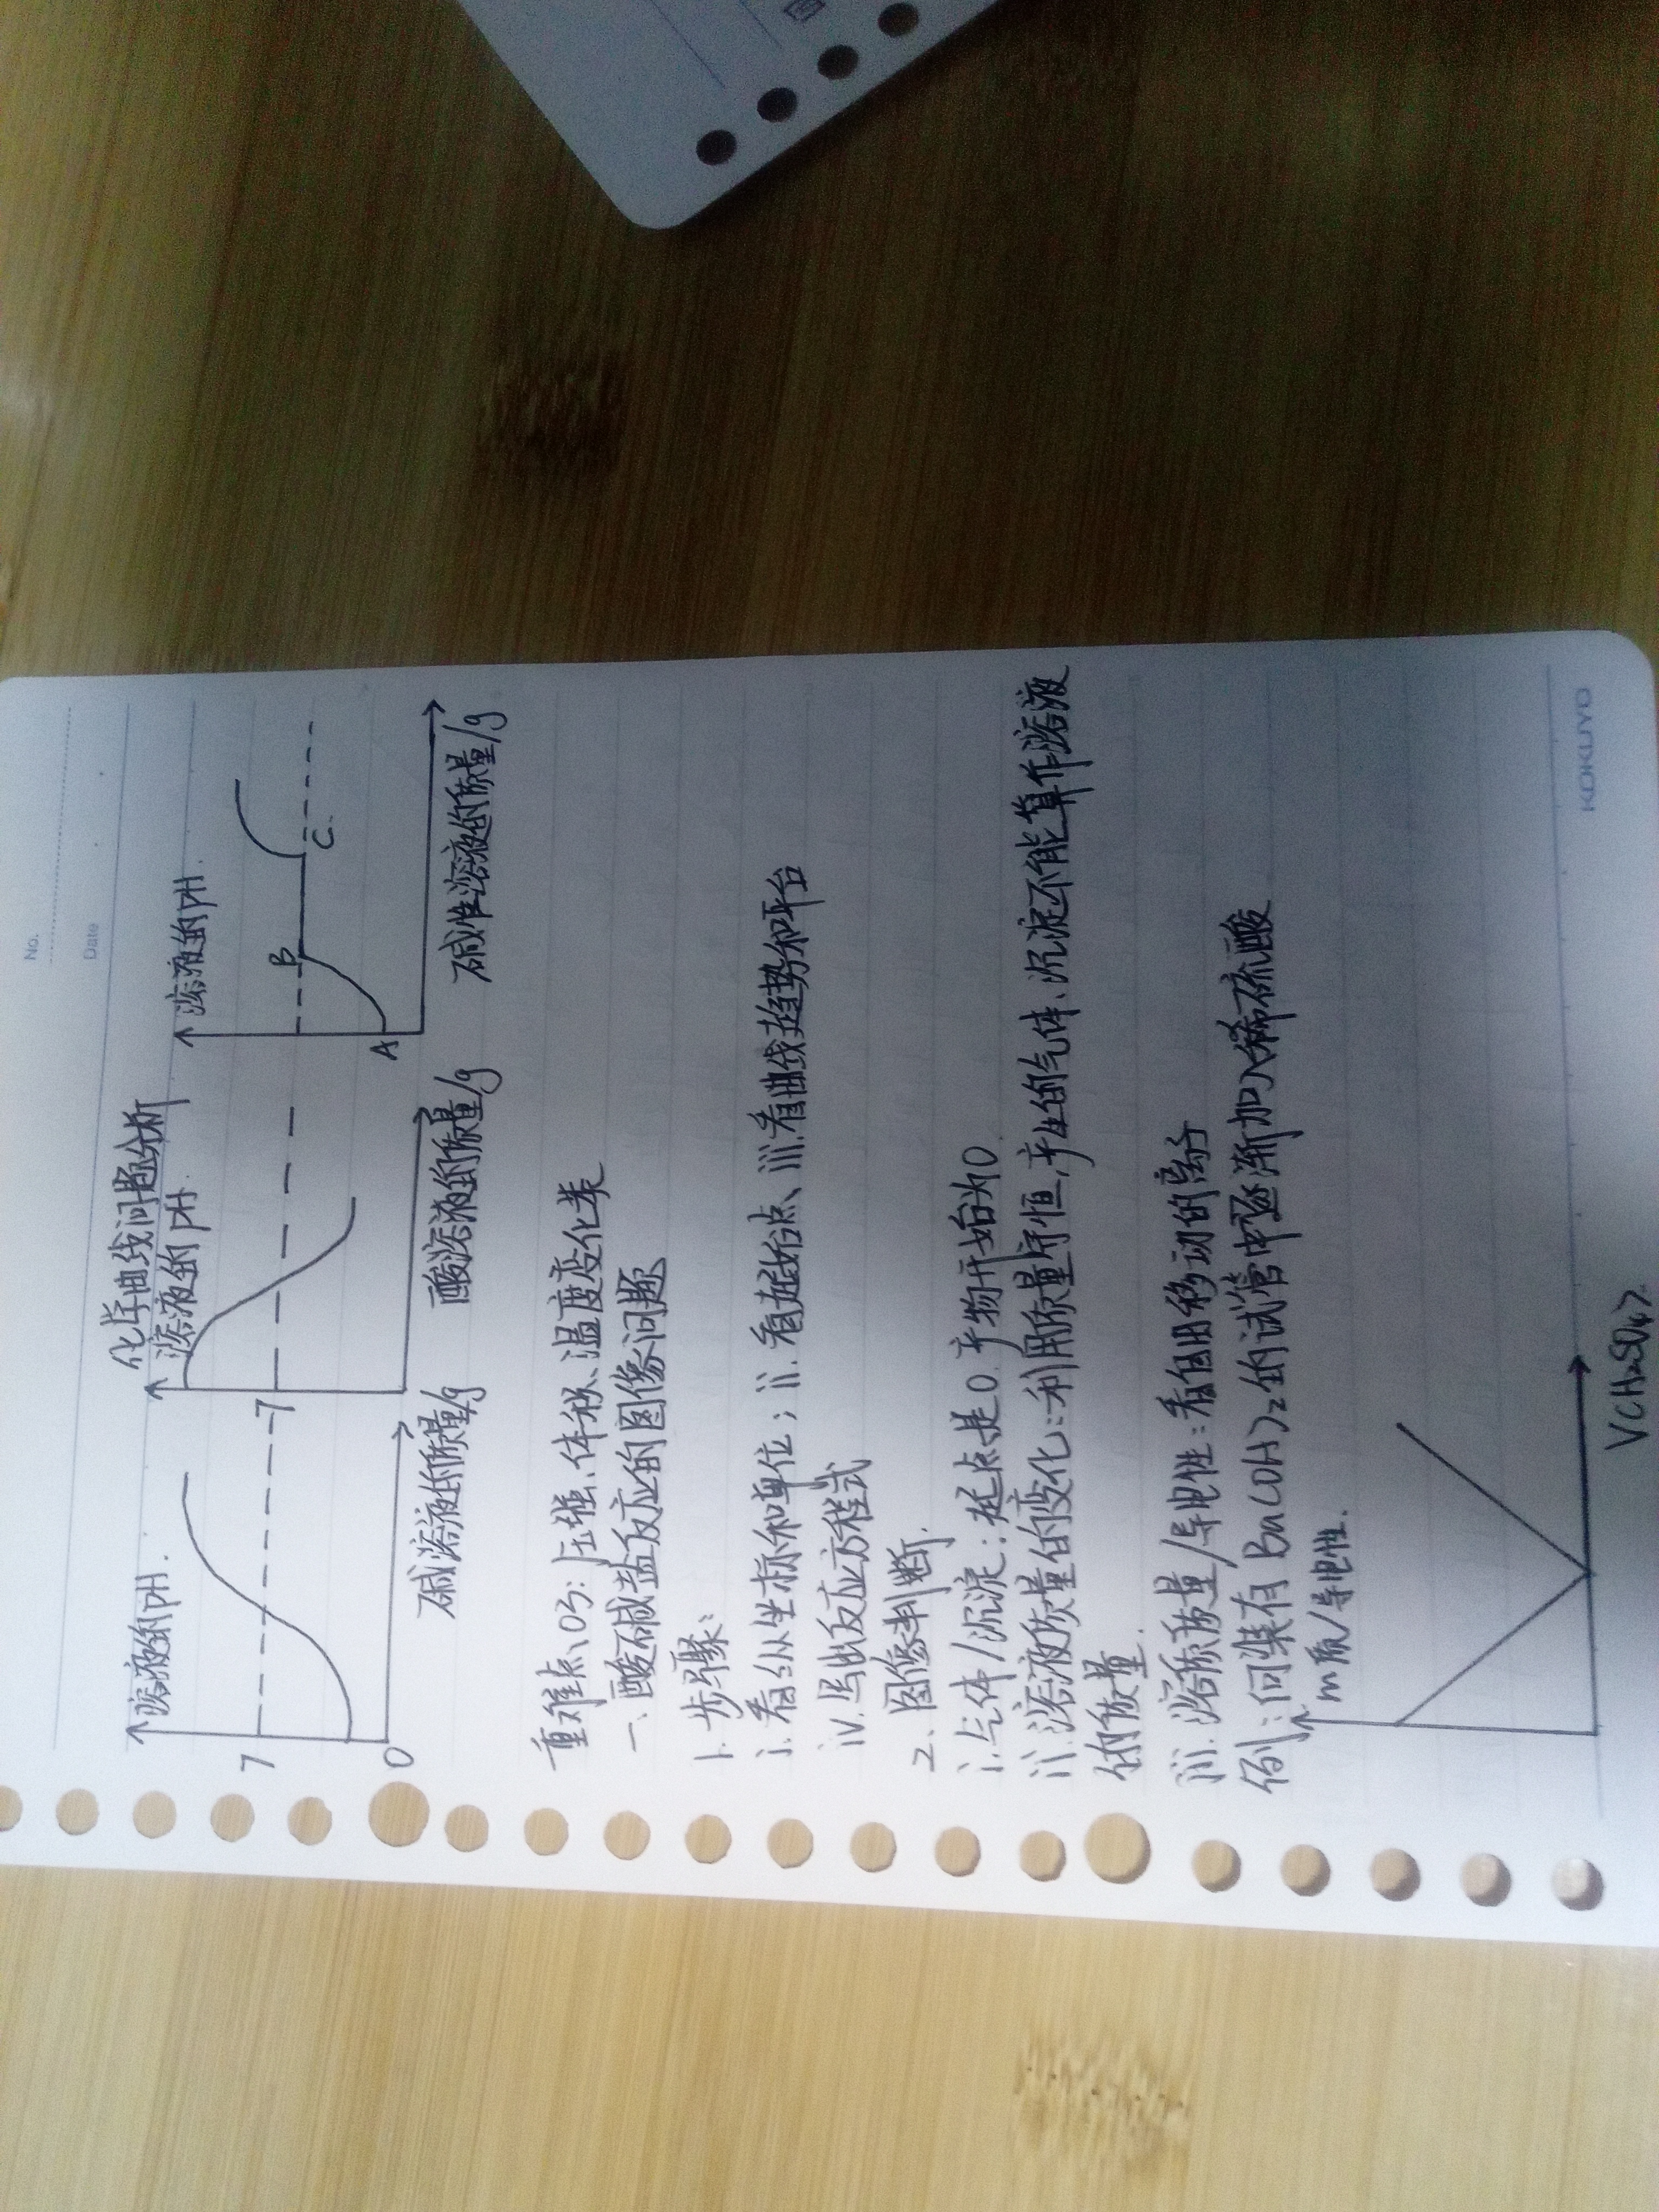 No.
Date
化学曲线问题分析
溶液的pH.
7
0
碱溶液的质量/g
溶液的pH.
7
酸溶液的质量/g
溶液的pH.
A
B
C.
碱性溶液的质量/g
重难点03:压强、体积、温度变化类
一、酸碱盐反应的图像问题
1.步骤:
i.看纵坐标和单位;ii.看起始点、iii.看曲线趋势和平台
iv.写出反应方程式
2.图像判断.
i.气体/沉淀:起点是0.产物开始为0
ii.溶液质量的变化:利用质量守恒,产生的气体、沉淀不能算作溶液
的质量.
iii.溶质质量/导电性:看自由移动的离子
例:向装有Ba(OH)2的试管中逐渐加入稀硫酸
m质/导电性.
V(H2SO4).
KOKUYO